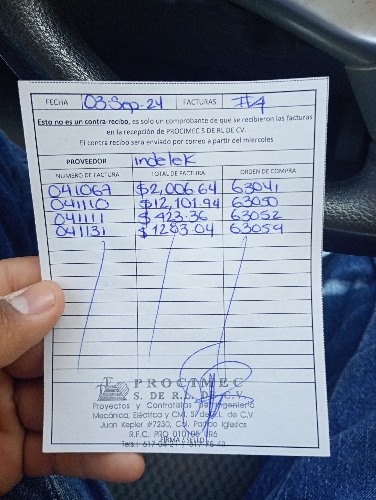 FECHA 03-Sep-24 FACTURAS #4
Esto no es un contra-recibo, es solo un comprobante de que se recibieron las facturas
en la recepción de PROCIMEC S DE RL DE CV.
El contra recibo sera enviado por correo a partir del miercoles
PROVEEDOR indelek
NUMERO DE FACTURA TOTAL DE FACTURA ORDEN DE COMPRA
041067 $2,006.64 63041
041110 $12,101.94 63050
041111 $ 423.36 63052
041131 $ 1293.04 63054
PROCIMEC
S. DE R.L. DE C.V.
Proyectos y Contratistas de Ingeniería
Mecánica, Eléctrica y Civil, S. de R.L. de C.V.
Juan Kepler #7230, Col. Parque Iglesias
R.F.C. PRO
FIRMA Y SELLO